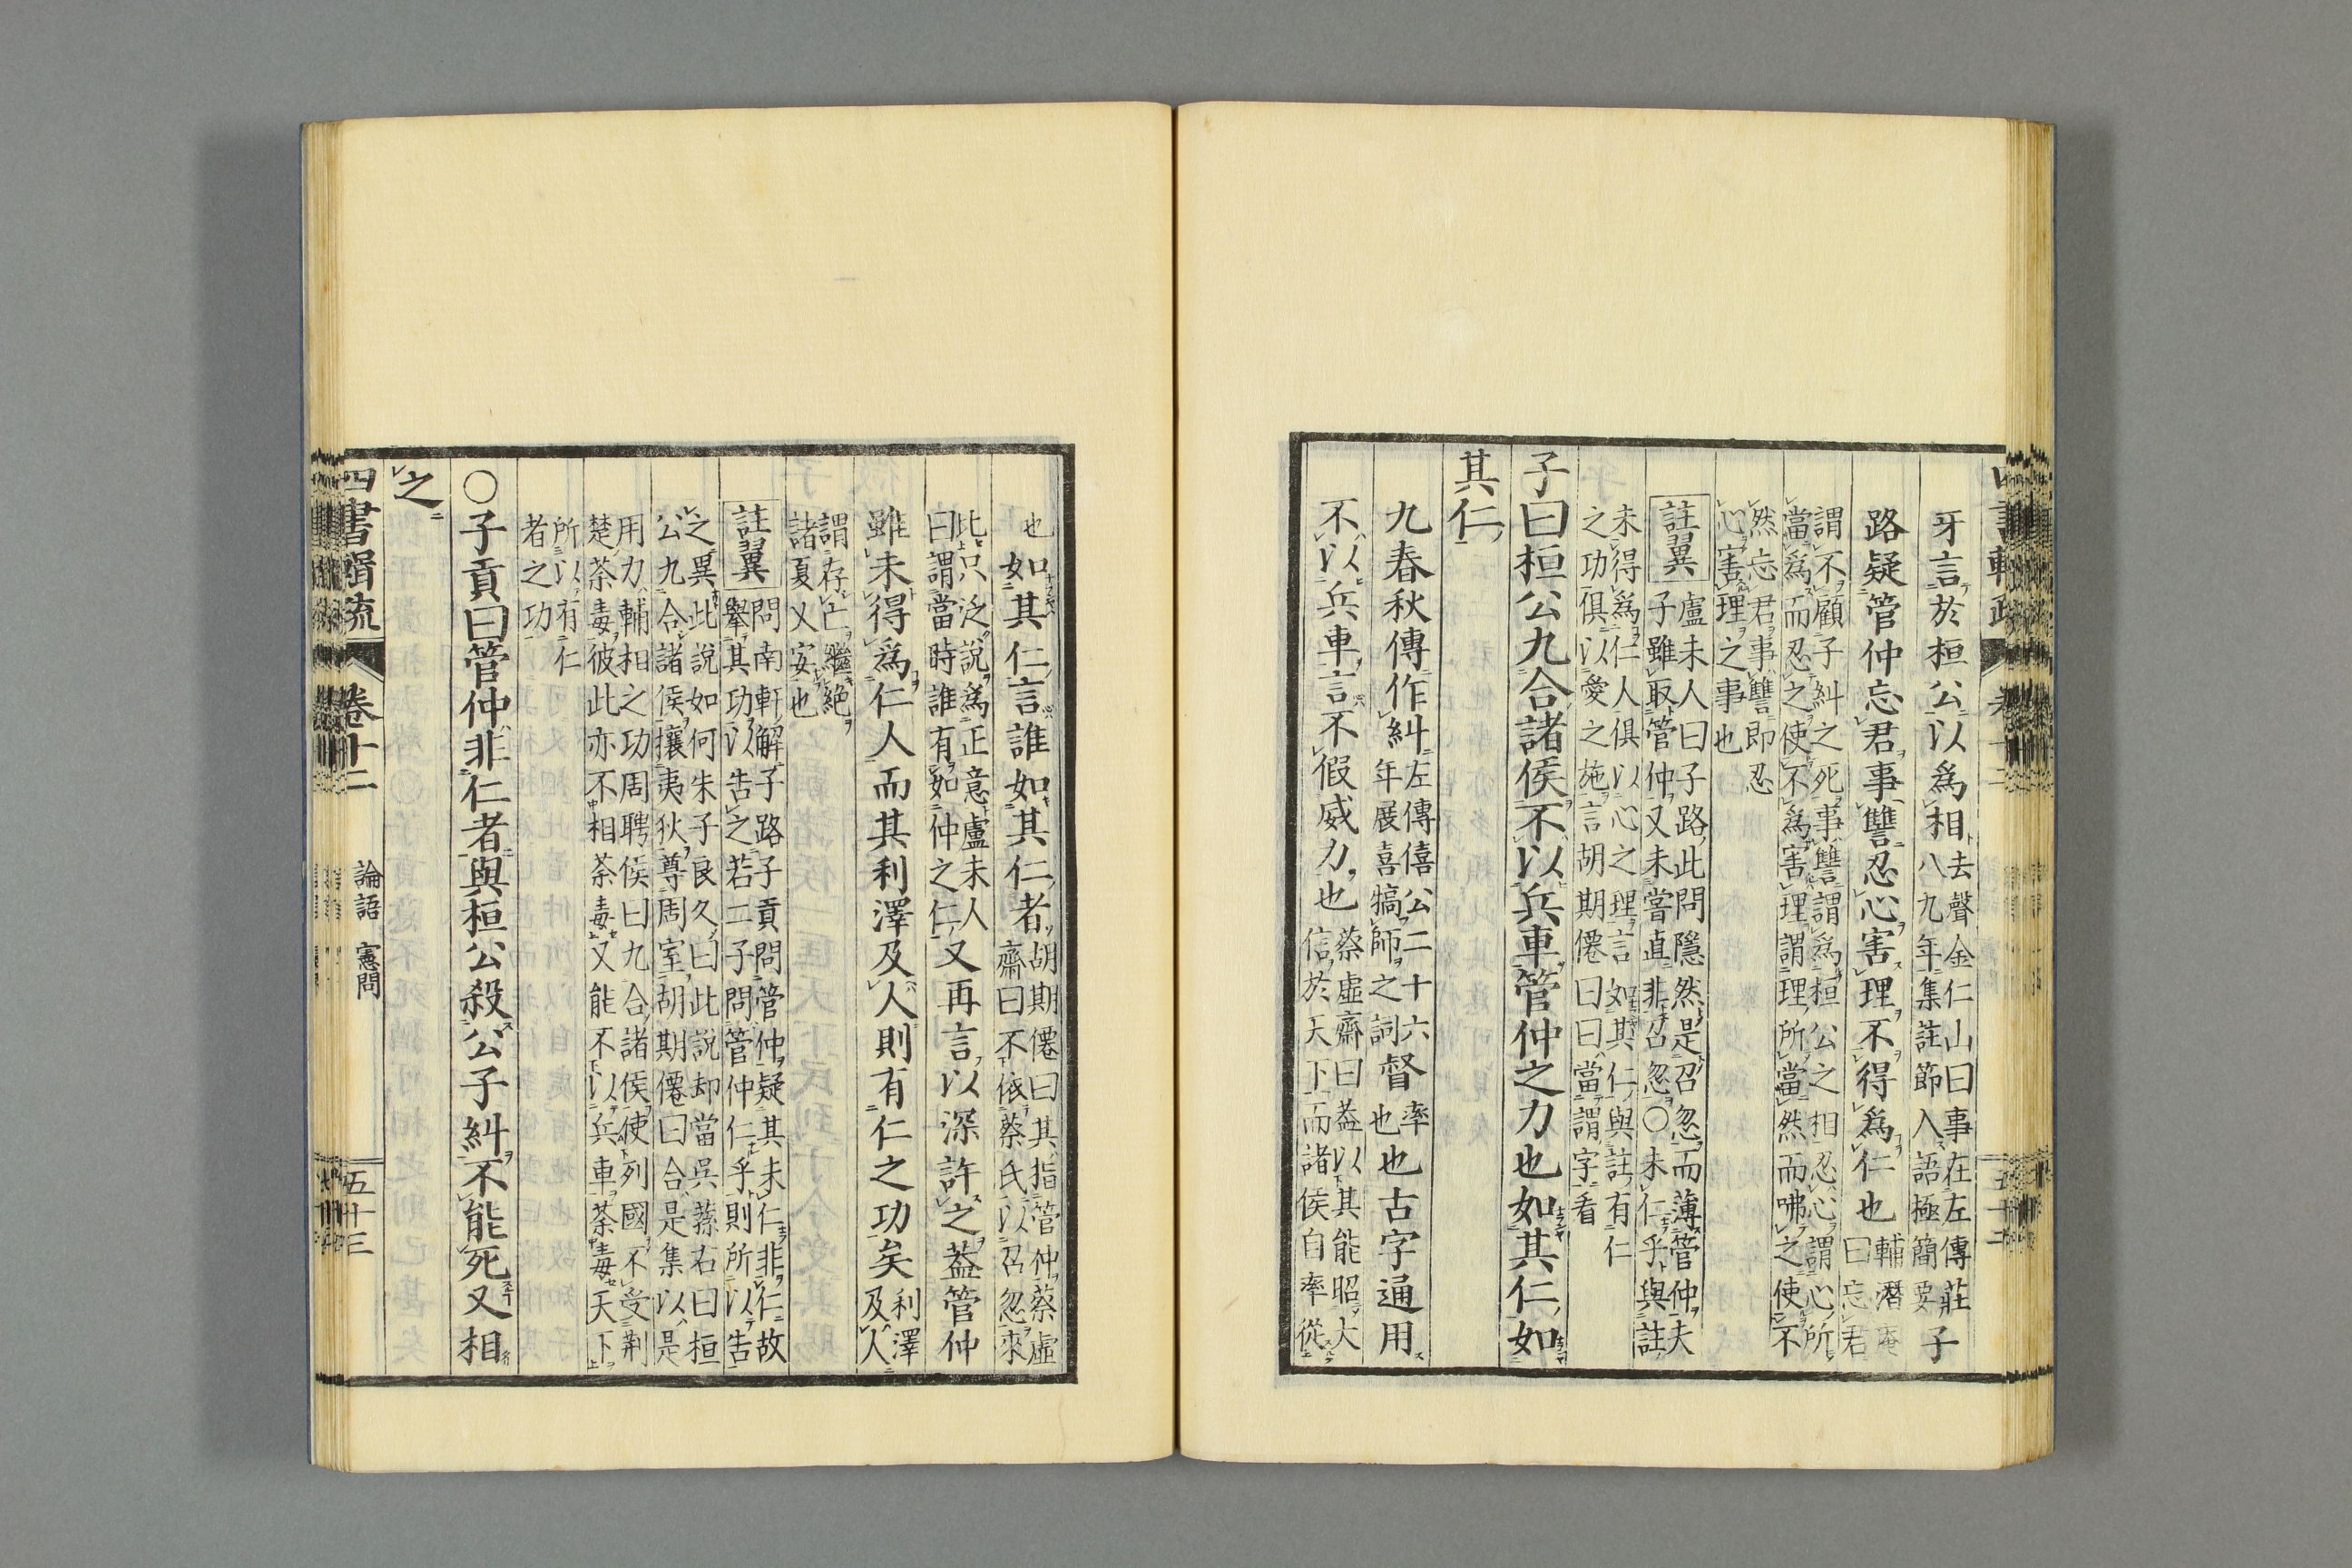 牙言於桓公以爲相去聲金仁山曰事在左傳莊八九年集註節入語極簡要子
路疑管仲忘君事讐忍心害理不得爲仁也輔潛庵曰忘君
謂不顧子糾之死事讐謂爲桓公之相忍心謂心所
當爲而忍之使不爲害理謂理所當然而咈之使不
然忘君事讐即忍
心害理之事也
註翼
盧未人曰子路此問隱然是召忽而薄管仲夫
子雖取管仲又未嘗直非召忽○未仁乎與註
未得爲仁人俱以心之理言如其仁與註有仁
之功俱以愛之施言胡期僊曰曰當謂字看
子曰桓公九合諸侯不以兵車管仲之力也如其仁如
其仁
九春秋傳作糾左傳僖公二十六年展喜犒師之詞督率也也古字通用
不以兵車言不假威力也蔡虛齋曰蓋以其能昭大信於天下而諸侯自率從
也如其仁言誰如其仁者胡期僊曰其指管仲蔡虛齋曰不依蔡氏以召忽來
此只泛說爲正意盧未人曰謂當時誰有如仲之仁又再言以深許之葢管仲
雖未得爲仁人而其利澤及人則有仁之功矣利澤及人
謂存亡繼絕
諸夏乂安也
註翼
問南軒解子路子貢問管仲疑其未仁非仁故
擧其功以告之若二子問管仲仁乎則所以告
之異此說如何朱子良久曰此說却當吳蓀右曰桓
公九合諸侯攘夷狄尊周室胡期僊曰合是集以是
用力輔相之功周聘侯曰九合諸侯使列國不受荆
楚荼毒彼此亦不相荼毒又能不以兵車荼毒天下
所以有仁
者之功
○子貢曰管仲非仁者與桓公殺公子糾不能死又相
之
四書輯疏
卷十二
論語 憲問
五十三